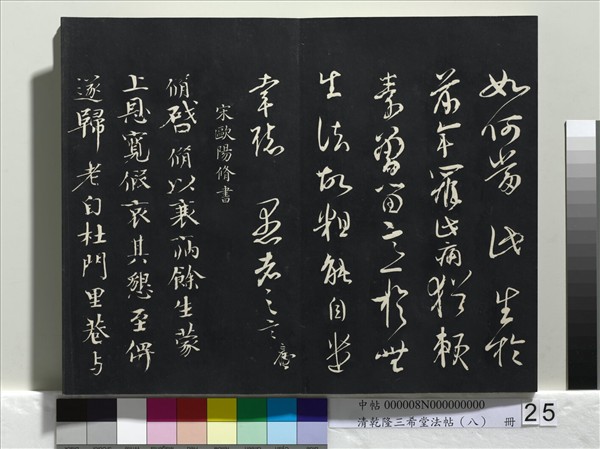 如何當此生於
前年罹此病猶賴
素留意於無
生法故粗能自
幸聽愚者之言
宋歐陽脩書
脩啓脩以衰病餘生蒙
上恩寬假哀其懇至俾
遂歸老自杜門里巷与
中帖 000008N000000000
清乾隆三希堂法帖（八） 冊
25